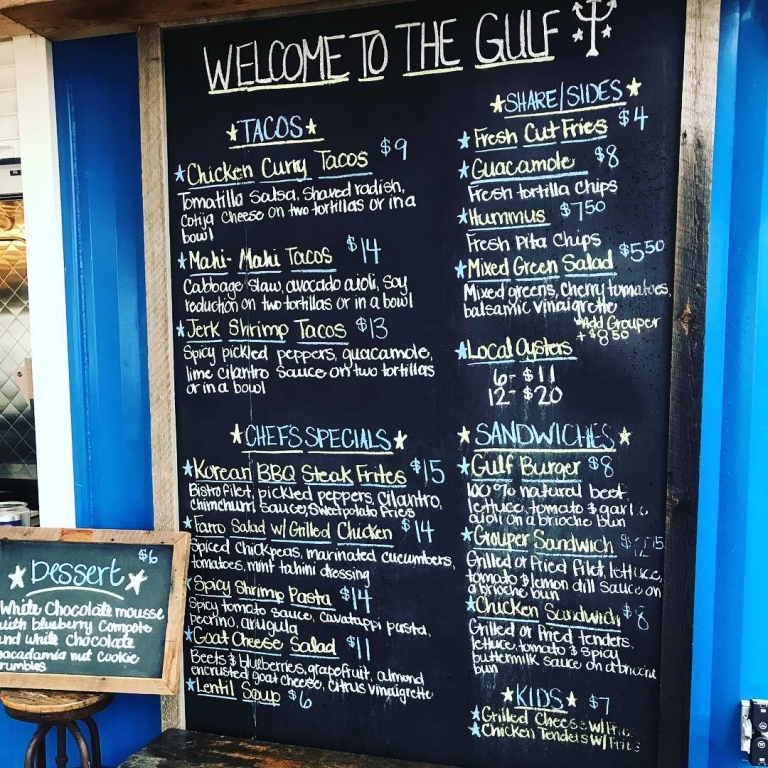 WELCOME TO THE GULF
TACOS
Chicken Curry Tacos $9
Tomatillo Salsa, Shaved radish,
Cotija Cheese on two tortillas or in a
bowl
Mahi-Mahi Tacos $14
Cabbage slaw, avocado aioli, Soy
reduction on two tortillas or in a bowl
Jerk Shrimp Tacos $13
Spicy pickled peppers, guacamole,
lime cilantro sauce on two tortillas
or in a bowl
CHEFS SPECIALS
Korean BBQ Steak Frites $15
Bistro filet, pickled peppers, Cilantro,
Chimichurri Sauce, Sweet potato fries
Farro Salad w/ Grilled Chicken $14
Spiced Chickpeas, marinated cucumbers,
tomatoes, mint tahini dressing
Spicy Shrimp Pasta $14
Spicy tomato sauce, Cavatappi pasta,
pecorino, arugula
Goat Cheese Salad $11
Beets & blueberries, grapefruit, almond
encrusted goat cheese, Citrus vinaigrette
Lentil Soup $6
SHARE/SIDES
Fresh Cut Fries $4
Guacamole $8
Fresh tortilla Chips
Hummus $7.50
Fresh Pita Chips
Mixed Green Salad $5.50
Mixed greens, Cherry tomatoes,
balsamic vinaigrette
*Add Grouper
+ $8.50
Local Oysters
6- $11
12- $20
SANDWICHES
Gulf Burger $8
100% natural beef
lettuce, tomato & garlic
aioli on a brioche bun
Grouper Sandwich
Grilled or Fried Filet, lettuce,
tomato & lemon dill Sauce on
a brioche bun
Chicken Sandwich $8
Grilled or Fried tenders,
lettuce, tomato & spicy
buttermilk sauce on a brioche
bun
KIDS $7
Grilled Cheese w/ Fries
Chicken Tenders w/ Fries
$6
Dessert
White Chocolate mousse
with blueberry Compote
and White Chocolate
macadamia nut Cookie
crumbles